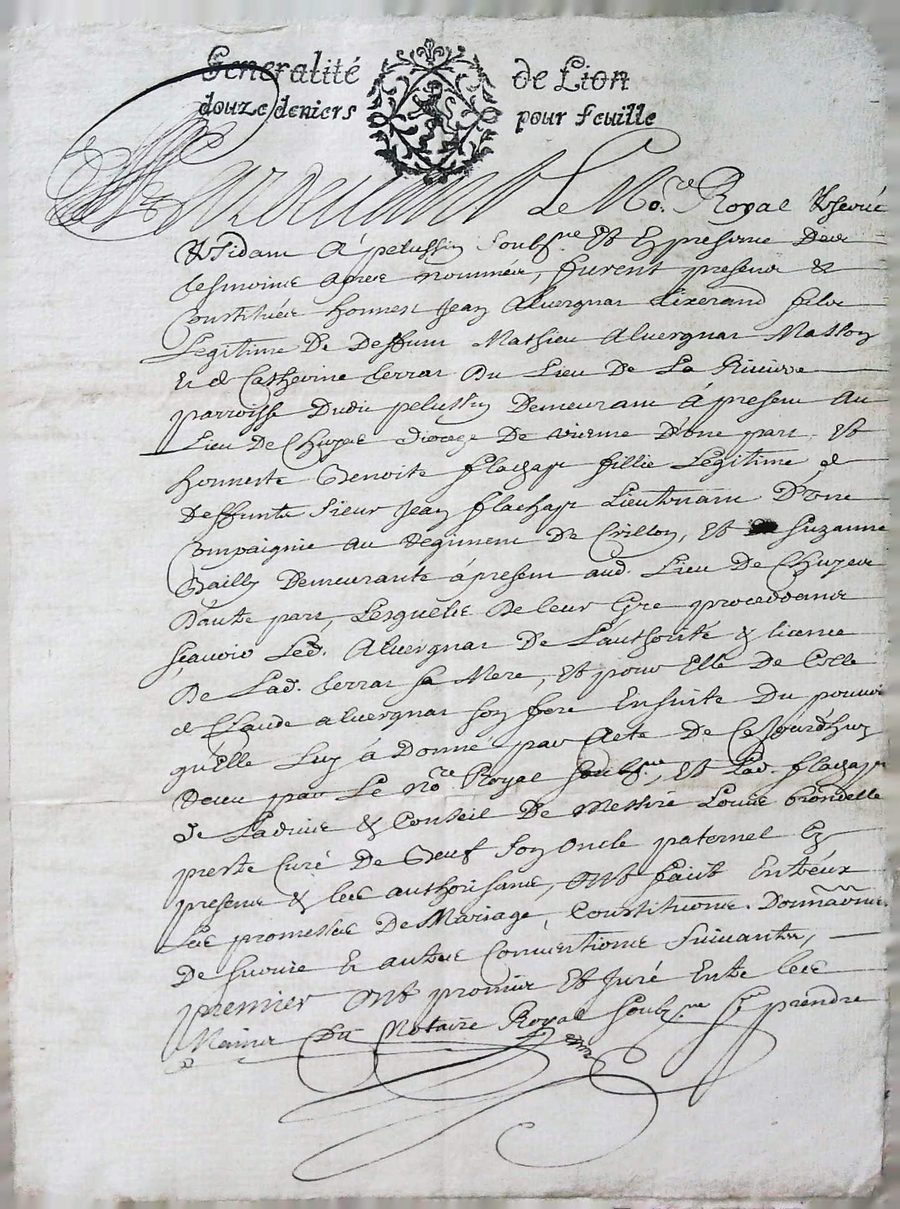 Generalité de Lion
douze deniers pour feuille
Pardeuant Le No.re Royal
A pelussin soubsne Et En presence Des
tesmoins apres nommés, furent presens &
Constitués honnest Jean Aluergnat tixerand filz
Legitime De Deffunt Mathieu Aluergnat Masson
Et de Catherine Serrat Du Lieu De La Riuiere
parroisse Dudit pelussin Demeurant à present Au
Lieu De Chuyes diocese De vienne D'vne part, Et
honneste Benoite flachat fillie Legitime de
Deffunts sieur Jean flachat Lieutenant D'vne
Compaignie au Regiment De Crillon, et Suzanne
Bailly Demeurante à present aud. Lieu De Chuyes
D'autre part, Lesquelles De leur Gré procedans
sçauoir Led. Aluergnat De L'authorité & licence
De Lad. Serrat sa Mere, Et pour Elle De Celle
de Claude aluergnat son frere Ensuite Du pouuoir
qu'Elle Luy à Donné par Acte De Ce Jourd'huy
receu par Le No.re Royal soubs.ne, Et Lad. flachat
de L'aduis & Conseil De Messire Louis
prestre Curé De Boeuf son oncle paternel Cy
present & les authorisant, ont faict Entreux
Les promesses De Mariage, Constitutions Donnaons
De suruie Et autres Conuentions suiuantes,
premier ont promis Et Juré Entre les
Mains Du Notaire Royal soubs.ne se prendre